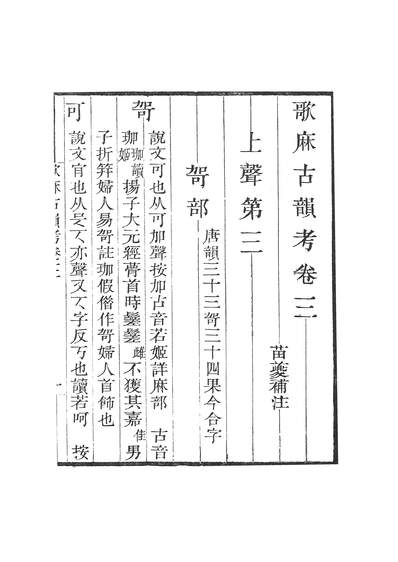 歌麻古韻考卷三
苗夔補注
上聲第三
哿部 唐韻三十三哿三十四果今合字
哿 說文可也从可加聲按加古音若姬詳麻部 古音
珈讀揚子大元經瞢首時雌不獲其嘉佳男
子折笄婦人易哿註珈假借作哿婦人首飾也
可 說文肎也从𠃑𠀀𠀀亦聲又𠀀字反丂也讀若呵 按
歌麻古韻考卷三 一